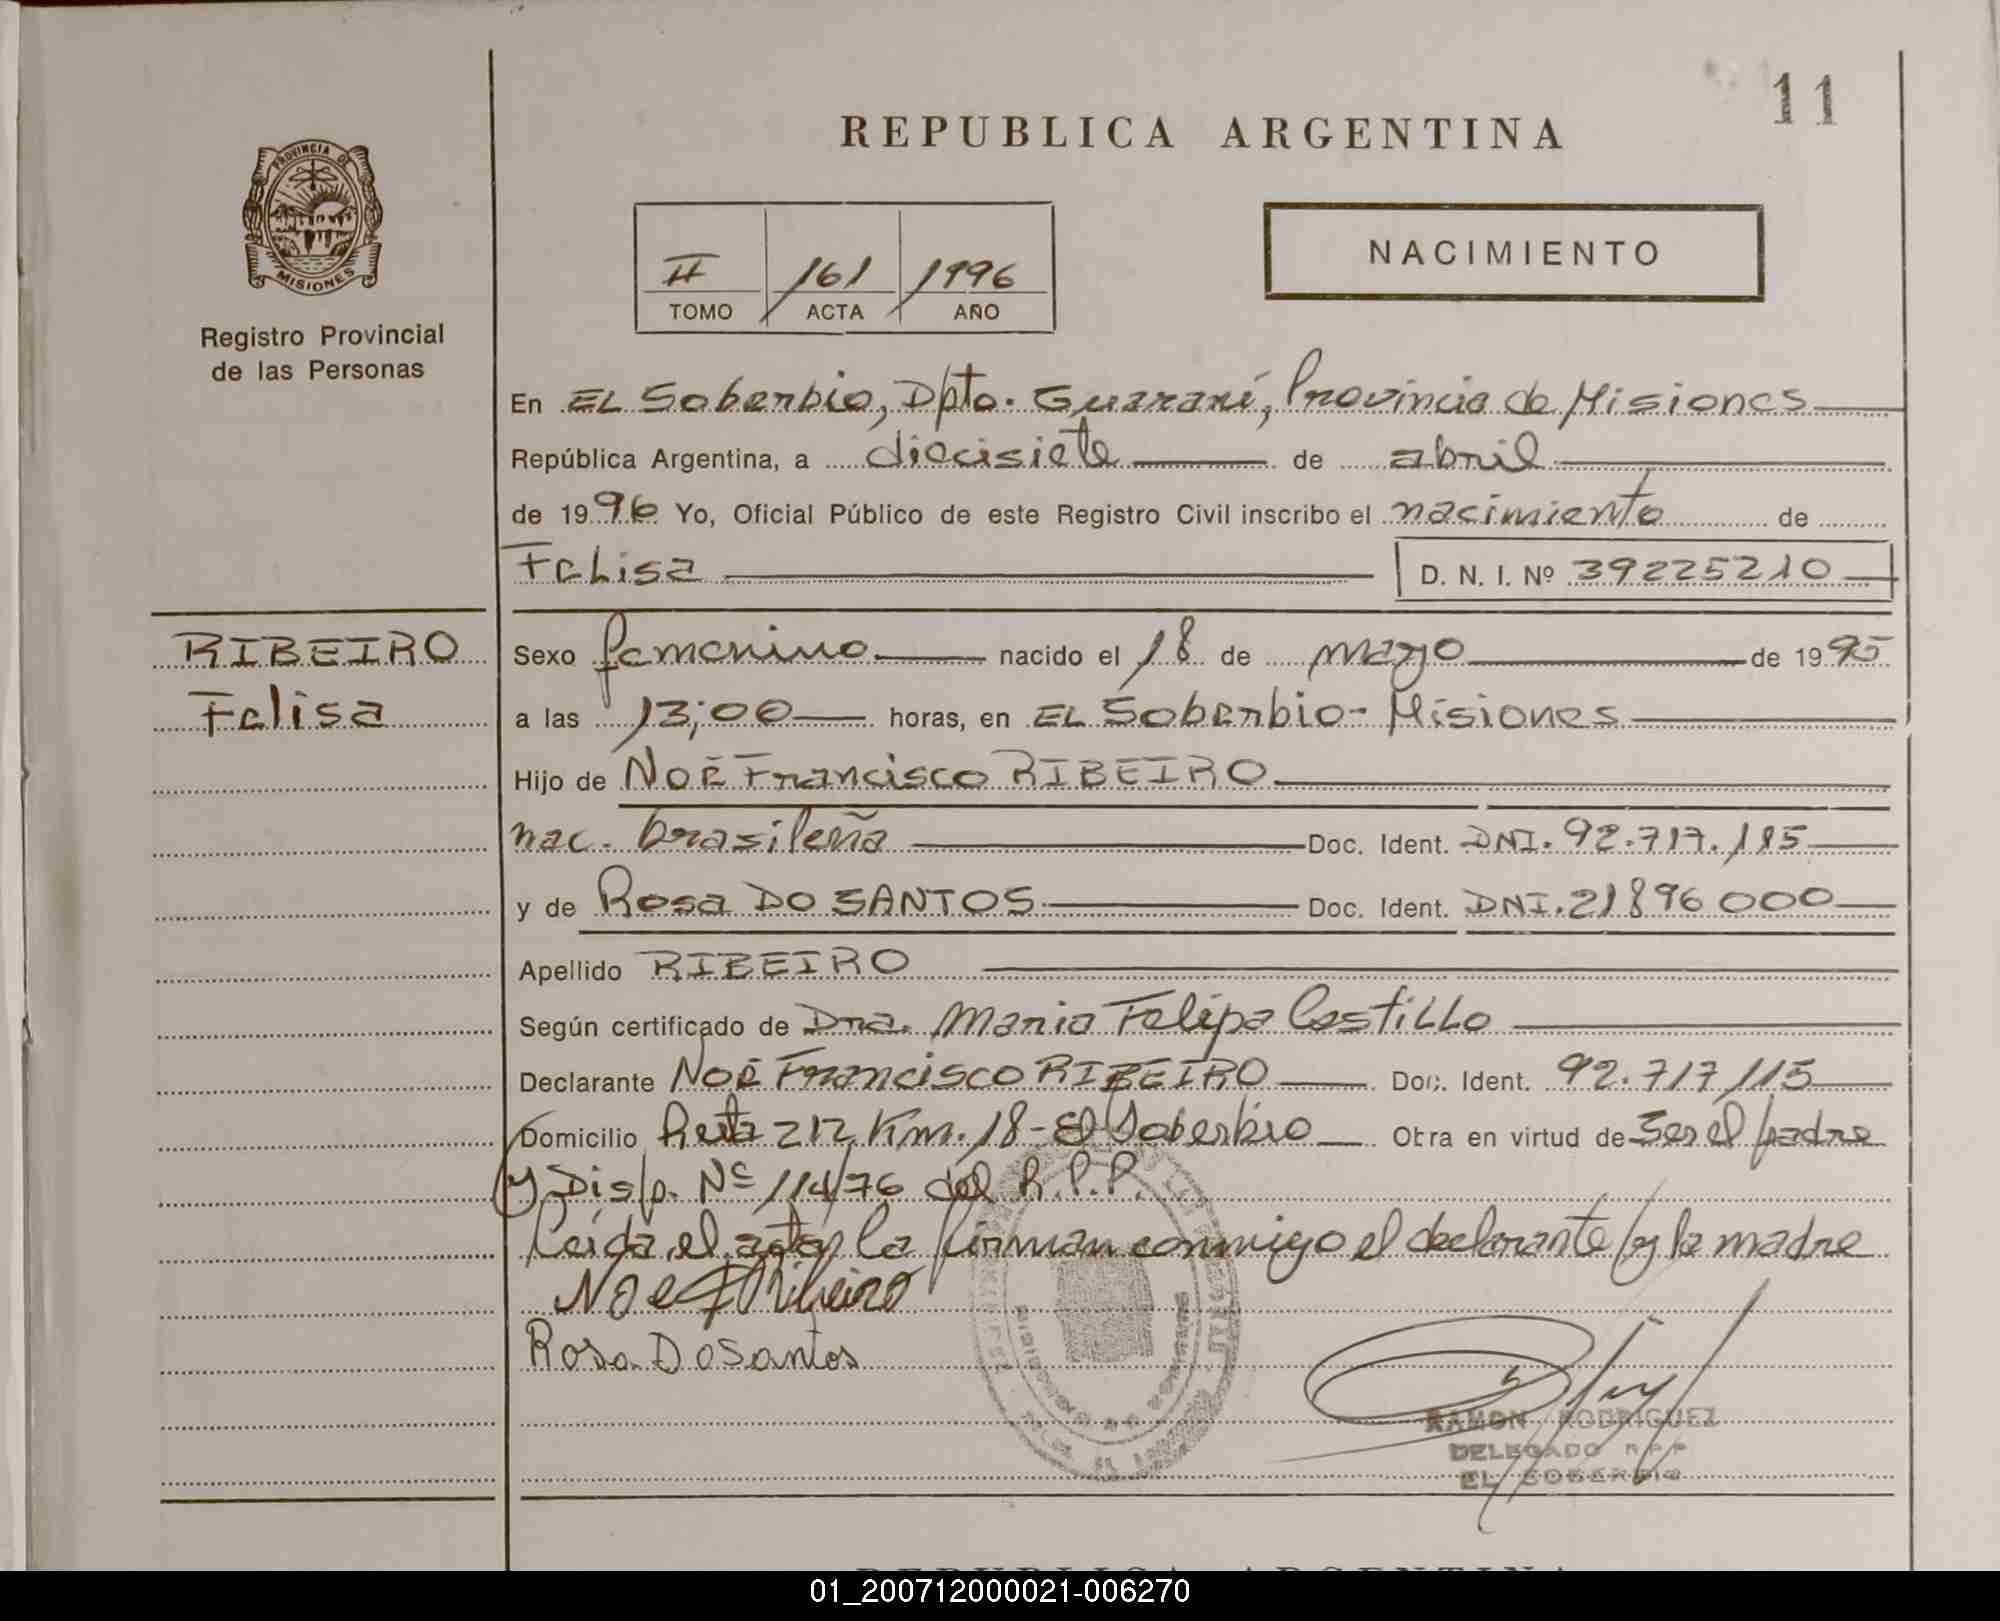 11
REPUBLICA ARGENTINA
PROVINCIA DE
MISIONES
Registro Provincial
de las Personas
II 161 1996
TOMO ACTA AÑO
NACIMIENTO
En EL Soberbio, Dpto. Guaraní, Provincia de Misiones
República Argentina, a diecisiete de abril
de 1996 Yo, Oficial Público de este Registro Civil inscribo el nacimiento de
Felisa D. N. I. Nº 39225210
RIBEIRO
Felisa
Sexo femenino nacido el 18 de mayo de 1995
a las 13;00 horas, en EL Soberbio - Misiones
Hijo de Noé Francisco RIBEIRO
nac. brasileña Doc. Ident. DNI. 92.717.115
y de Rosa DO SANTOS Doc. Ident. DNI. 21896000
Apellido RIBEIRO
Según certificado de Dra. Maria Felipa Castillo
Declarante Noé Francisco RIBEIRO Doc. Ident. 92.717/115
Domicilio Ruta 212 Km. 18 - El Soberbio Obra en virtud de ser el padre
y Disp. Nº 114/76 del R.P.P.
Leída el acta, la firman conmigo el declarante y la madre
Noe F Ribeiro
Rosa Do Santos
RAMON RODRIGUEZ
DELEGADO R P P
EL SOBERBIO
REPUBLICA ARGENTINA
01_200712000021-006270